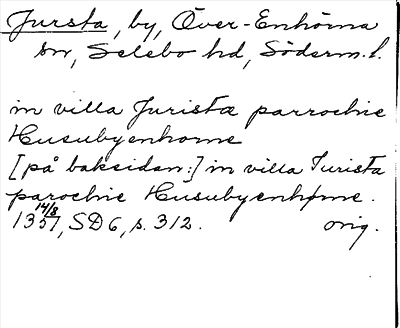 Jursta, by, Över-Enhörna
sn, Selebo hd, Söderm. l.
in villa Jurista parrochie
Husubyenhorne
[på baksidan:] in villa Iurista
parochie Husubyenhørne.
1357 14/8, SD 6, s. 312. orig.